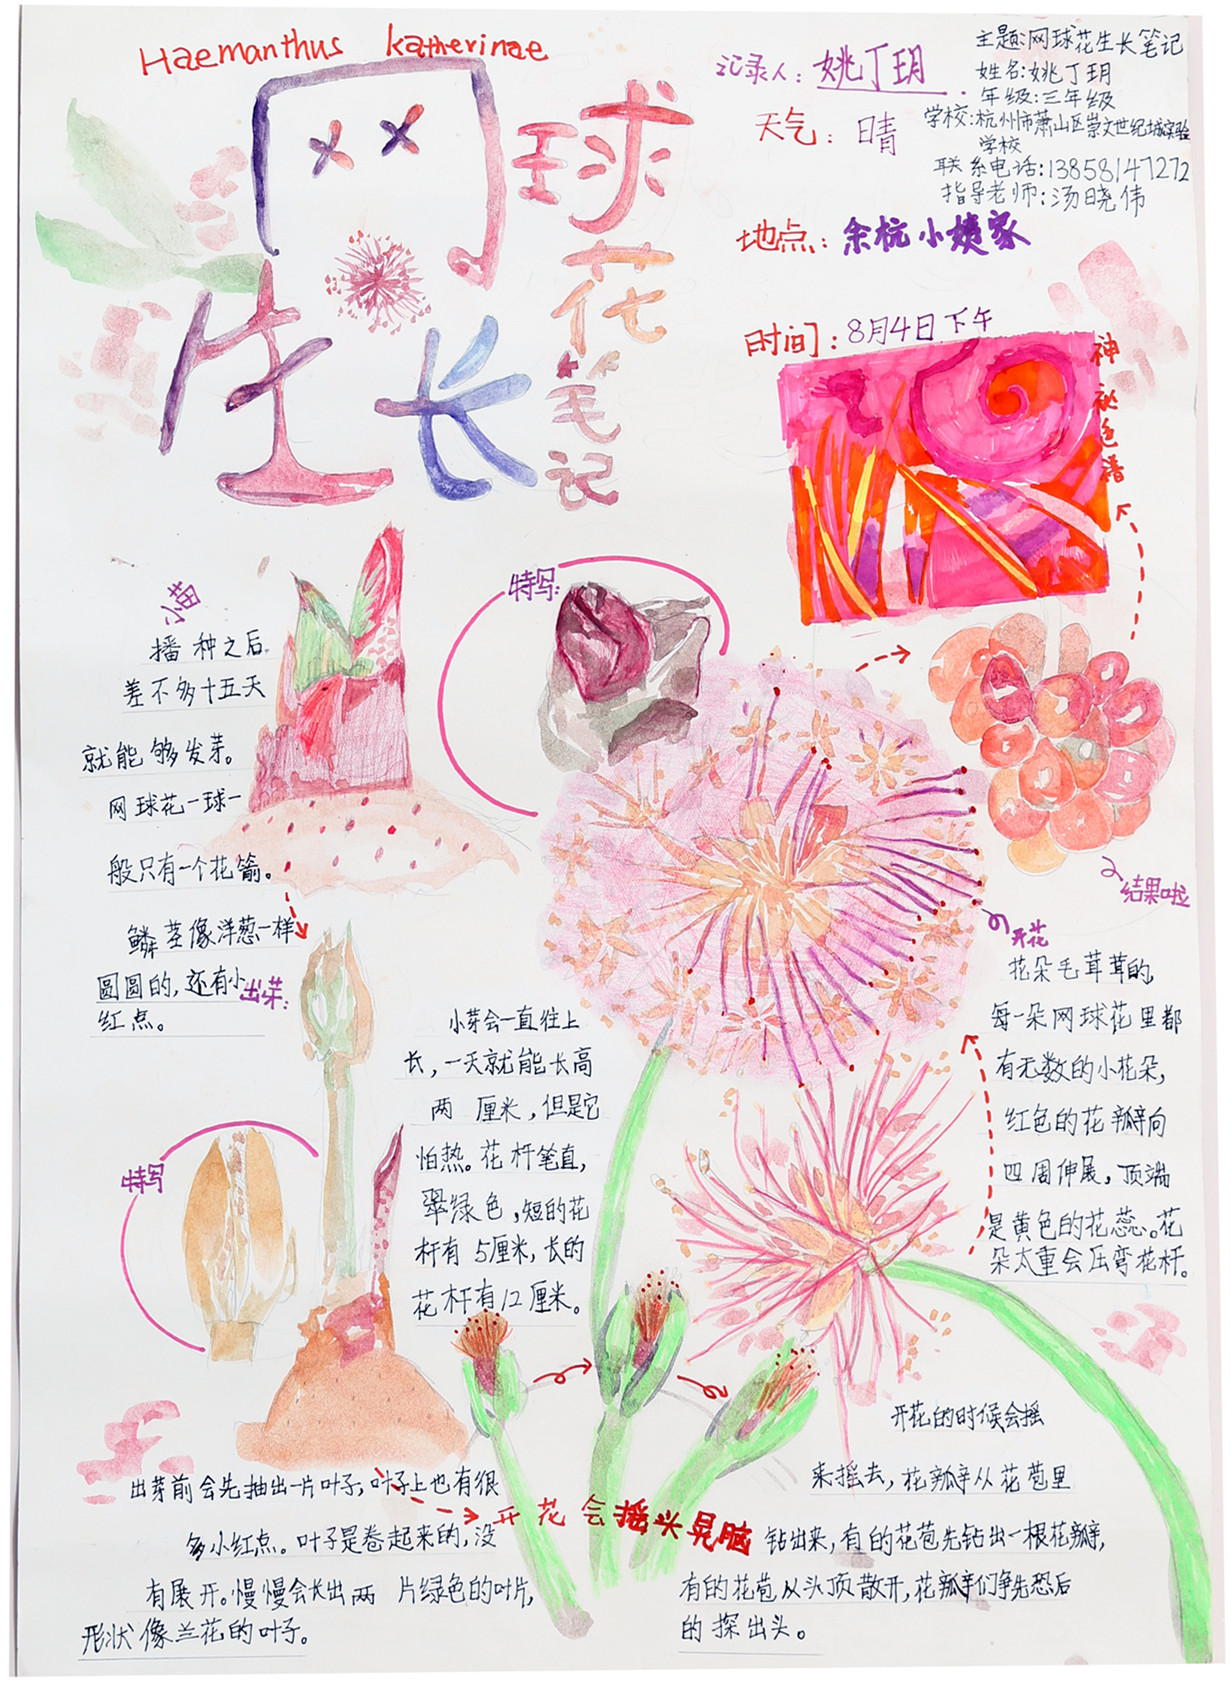 Haemanthus katherinae
网球花
生长笔记
记录人：姚丁玥
天气：晴
地点：余杭小姨家
时间：8月4日下午
主题:网球花生长笔记
姓名:姚丁玥
年级:三年级
学校:杭州市萧山区崇文世纪城实验
学校
联系电话:13858147272
指导老师:汤晓伟
神秘色谱
特写:
播种之后
差不多十五天
就能够发芽。
网球花一球一
般只有一个花箭。
鳞茎像洋葱一样
圆圆的,还有小
红点。
出芽:
小芽会一直往上
长,一天就能长高
两厘米,但是它
怕热。花杆笔直,
翠绿色,短的花
杆有5厘米,长的
花杆有12厘米。
特写
结果啦
开花
花朵毛茸茸的,
每一朵网球花里都
有无数的小花朵,
红色的花瓣向
四周伸展,顶端
是黄色的花蕊。花
朵太重会压弯花杆。
出芽前会先抽出一片叶子,叶子上也有很
多小红点。叶子是卷起来的,没
有展开。慢慢会长出两片绿色的叶片,
形状像兰花的叶子。
开花会摇头晃脑
开花的时候会摇
来摇去,花瓣从花苞里
钻出来,有的花苞先钻出一根花瓣,
有的花苞从头顶散开,花瓣们争先恐后
的探出头。